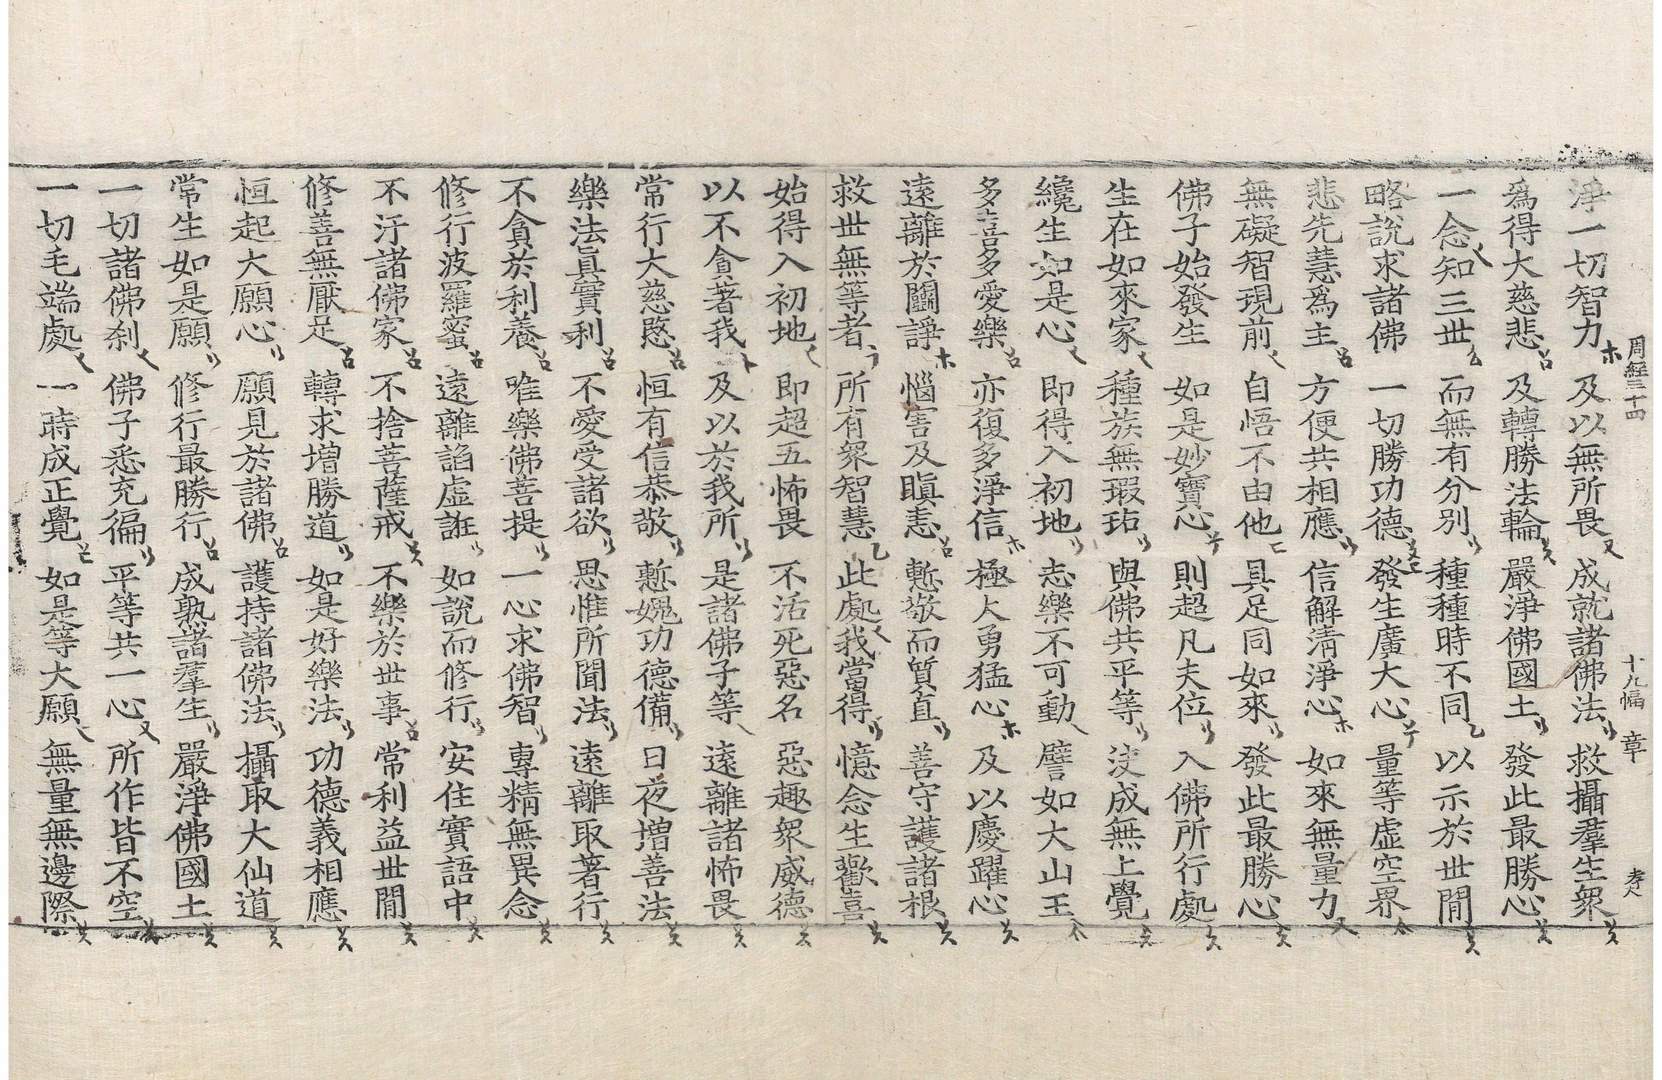 周經三十四 十九幅 章
淨一切智力 及以無所畏 成就諸佛法 救攝羣生衆
爲得大慈悲 及轉勝法輪 嚴淨佛國土 發此最勝心
一念知三世 而無有分別 種種時不同 以示於世間
略說求諸佛 一切勝功德 發生廣大心 量等虛空界
悲先慧爲主 方便共相應 信解淸淨心 如來無量力
無礙智現前 自悟不由他 具足同如來 發此最勝心
佛子始發生 如是妙寶心 則超凡夫位 入佛所行處
生在如來家 種族無瑕玷 與佛共平等 決成無上覺
纔生如是心 即得入初地 志樂不可動 譬如大山王
多喜多愛樂 亦復多淨信 極大勇猛心 及以慶躍心
遠離於鬪諍 惱害及瞋恚 慙敬而質直 善守護諸根
救世無等者 所有衆智慧 此處我當得 憶念生歡喜
始得入初地 即超五怖畏 不活死惡名 惡趣衆威德
以不貪著我 及以於我所 是諸佛子等 遠離諸怖畏
常行大慈愍 恒有信恭敬 慙媿功德備 日夜增善法
樂法眞實利 不愛受諸欲 思惟所聞法 遠離取著行
不貪於利養 唯樂佛菩提 一心求佛智 專精無異念
修行波羅蜜 遠離諂虛誑 如說而修行 安住實語中
不汙諸佛家 不捨菩薩戒 不樂於世事 常利益世間
修善無厭足 轉求增勝道 如是好樂法 功德義相應
恒起大願心 願見於諸佛 護持諸佛法 攝取大仙道
常生如是願 修行最勝行 成熟諸羣生 嚴淨佛國土
一切諸佛刹 佛子悉充徧 平等共一心 所作皆不空
一切毛端處 一時成正覺 如是等大願 無量無邊際